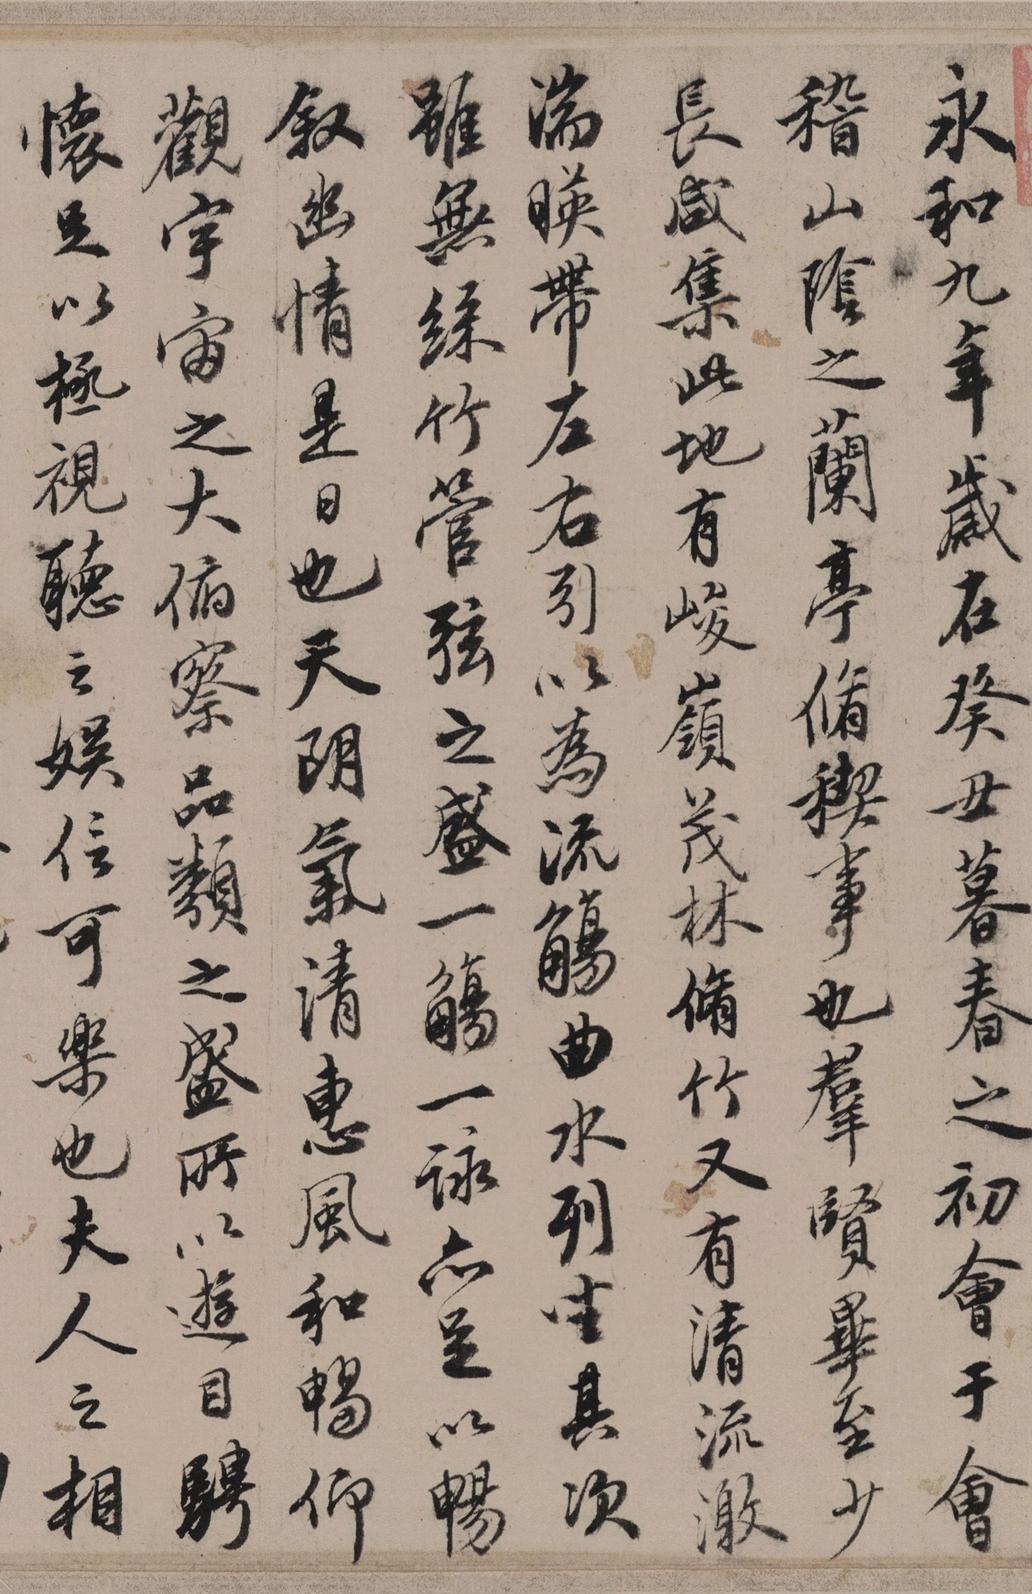 永和九年歲在癸丑暮春之初會于會
稽山陰之蘭亭脩稧事也羣賢畢至少
長咸集此地有峻嶺茂林脩竹又有清流激
湍暎帶左右引以為流觴曲水列坐其次
雖無絲竹管弦之盛一觴一詠亦足以暢
叙幽情是日也天朗氣清惠風和暢仰
觀宇宙之大俯察品類之盛所以遊目騁
懷足以極視聽之娛信可樂也夫人之相